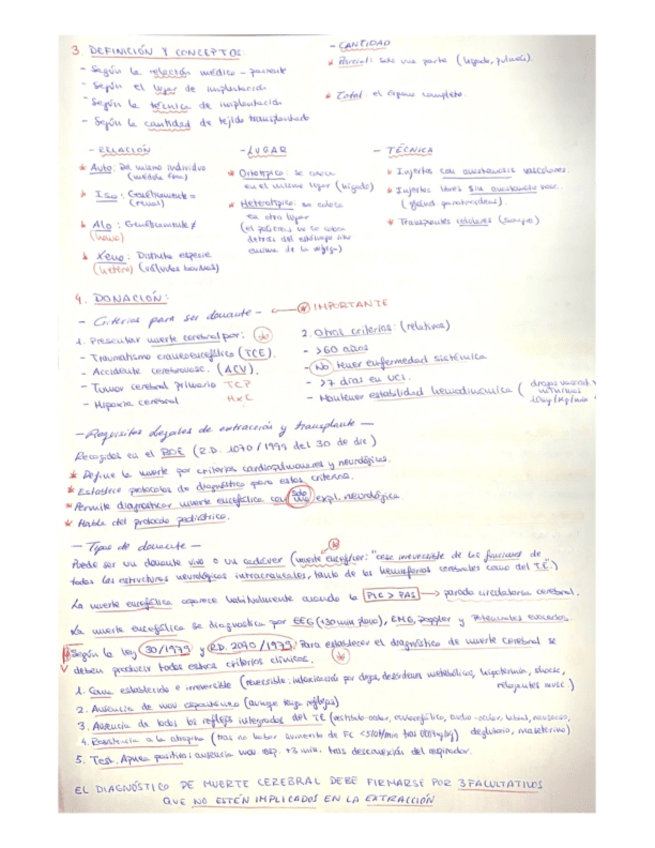 3. DEFINICIÓN Y CONCEPTOS:
- Según la relación médico - paciente
- Según el lugar de implantación
- Según la técnica de implantación
- Según la cantidad de tejido transplantado
- CANTIDAD
* Parcial: solo una parte (hígado, pulmón).
* Total: el órgano completo.
- RELACIÓN
* Auto: Del mismo individuo
* Iso: Genéticamente =
* Alo: Genéticamente ≠
(homo)
* Xeno: Distinta especie
(hetero) (válvulas bovinas)
- LUGAR
* Ortotópico: se coloca
en el mismo lugar (hígado)
* Heterotópico: se coloca
en otro lugar
(el páncreas no se coloca
detrás del estómago sino
encima de la vejiga)
- TÉCNICA
* Injertos con anastomosis vasculares.
* Injertos libres sin anastomosis vasc.
* Transplantes celulares (sangre)
4. DONACIÓN:
- Criterios para ser donante - * IMPORTANTE
1. Presentar muerte cerebral por:
- Traumatismo craneoencefálico (TCE).
- Accidente cerebrovasc. (ACV).
- Tumor cerebral primario TCP
- Hipoxia cerebral HxC
2. Otros criterios: (relativos)
- >60 años
- No tener enfermedad sistémica
- >7 días en UCI.
- Mantener estabilidad hemodinámica (
- Requisitos legales de extracción y transplante -
Recogidos en el BOE (R.D. 1070/1999 del 30 de dic)
* Define la muerte por criterios cardiopulmonares y neurológicos.
* Establece protocolos de diagnóstico para estos criterios.
* Permite diagnosticar muerte encefálica con solo una expl. neurológica
* Habla del protocolo pediátrico.
- Tipos de donante -
Puede ser un donante vivo o un cadáver (muerte encefálica: "cese irreversible de las funciones de
todas las estructuras neurológicas intracraneales, tanto de los hemisferios cerebrales como del T.E.)
La muerte encefálica aparece habitualmente cuando la PIC > PAS → parada circulatoria cerebral.
La muerte encefálica se diagnostica por EEG (+30min plano), EMG, Doppler y Potenciales evocados.
Según la ley 30/1979 y R.D. 2070/1999: Para establecer el diagnóstico de muerte cerebral se
deben producir todos estos criterios clínicos.
1. Coma establecido e irreversible (reversible: intoxicación por drogas, desórdenes metabólicos, hipotermia, shock,
relajantes musc.)
2. Ausencia de mov espontáneo (aunque tenga reflejos)
3. Ausencia de todos los reflejos integrados del TE
4. Resistencia a la atropina
5. Test Apnea positivo: ausencia mov resp. +3 min. tras desconexión del respirador.
EL DIAGNÓSTICO DE MUERTE CEREBRAL DEBE FIRMARSE POR 3 FACULTATIVOS
QUE NO ESTÉN IMPLICADOS EN LA EXTRACCIÓN